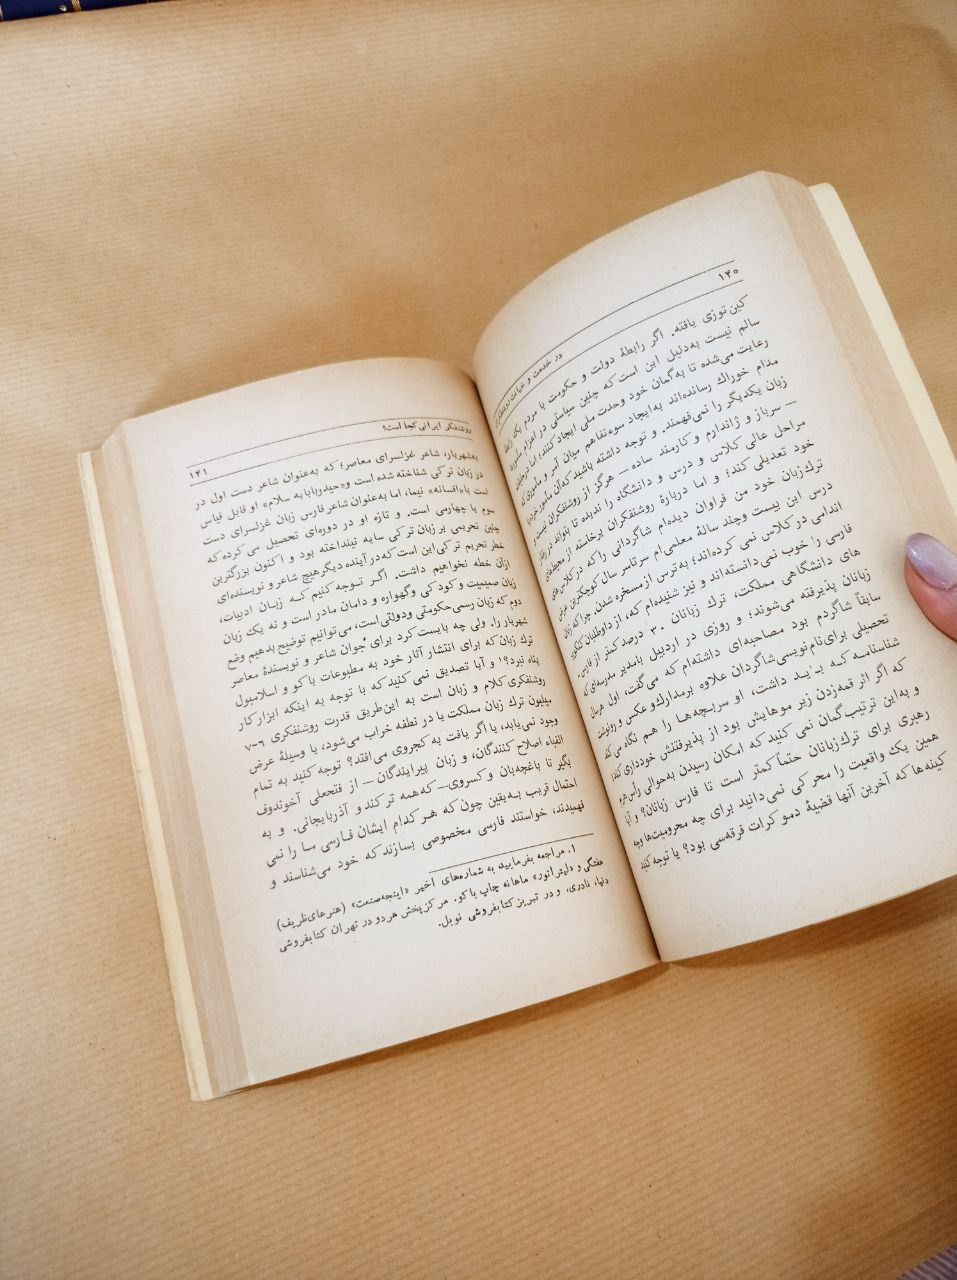 ۱۴۰
در خدمت و خیانت روشنفکران
کین توزی یافته. اگر رابطهٔ دولت و حکومت با مردم یک رابطهٔ
سالم نیست به‌دلیل این است که چنین سیاستی در اعزام مأمور
رعایت می‌شده تا به‌گمان خود وحدت ملی ایجاد کنند، اما درحقیقت
مدام خوراك رسانده‌اند به‌ایجاد سوءتفاهم میان آمر و مأموری که
زبان یکدیگر را نمی‌فهمند. و توجه داشته باشید که آن مأمور خود
— سرباز و ژاندارم و کارمند ساده — هرگز از روشنفکران نیست و
مراحل عالی کلاس و درس و دانشگاه را ندیده تا بتواند در رفتار
خود تعدیلی کند؛ و اما دربارهٔ روشنفکران برخاسته از محیطهای
ترك‌زبان خود من فراوان دیده‌ام شاگردانی را که در کلاس‌های
درس این بیست وچند سالهٔ معلمی‌ام سرتاسر سال کوچکترین عرض
اندامی در کلاس نمی کرده‌اند؛ به‌ترس از مسخره شدن. چرا که زبان
فارسی را خوب نمی‌دانسته‌اند و نیز شنیده‌ام که، از داوطلبان کنکور
های دانشگاهی مملکت، ترك زبانان ۳۰ درصد کمتر از فارسی
زبانان پذیرفته می‌شوند؛ و روزی در اردبیل بامدیر مدرسه‌ای که
سابقاً شاگردم بود مصاحبه‌ای داشته‌ام که می‌گفت، اول هرسال
تحصیلی برای نام‌نویسی شاگردان علاوه برمدارك و عکس و رونوشت
شناسنامه کـه بـاید داشت، او سربـچه‌هـا را هـم نگاه می‌کند
که اگر اثر قمه‌زدن زیر موهایش بود از پذیرفتنش خودداری کند،
و به این ترتیب گمان نمی کنید که امکان رسیدن به‌حوالی رأس هرم
رهبری برای ترك‌زبانان حتماً کمتر است تا فارس زبانان؟ و آیا
همین یک واقعیت را محرکی نمی‌دانید برای چه محرومیت‌ها وچه
کینه‌ها که آخرین آنها قضیهٔ دموکرات فرقه‌سی بود؟ یا توجه کنید
روشنفکر ایرانی کجا است؟
۱۴۱
به‌شهریار، شاعر غزلسرای معاصر؛ که به‌عنوان شاعر دست اول در
در زبان ترکی شناخته شده است و«حیدربابایه سلام» او قابل قیاس
است با «افسانه» نیما، اما به‌عنوان شاعر فارس زبان غزلسرای دست
سوم یا چهارمی است. و تازه او در دوره‌ای تحصیل می کرده که
چنین تحریمی بر زبان ترکی سایه نینداخته بود و اکنون بزرگترین
خطر تحریم ترکی این است که در آینده دیگر هیچ شاعر و نویسنده‌ای
ازآن خطه نخواهیم داشت. اگـر تـوجه کنیم کـه زبـان ادبیات،
زبان صمیمیت و کودکی و گهواره و دامان مادر است و نه یک زبان
دوم که زبان رسمی حکومتی ودولتی است، می‌توانیم توضیح بدهیم وضع
شهریار را. ولی چه بایست کرد برای جوان شاعر و نویسندهٔ معاصر
ترك زبان که برای انتشار آثار خود به مطبوعات باکو و اسلامبول
پناه نبرد؟۱ و آیا تصدیق نمی کنید که با توجه به اینکه ابزار کار
روشنفکری کلام و زبان است به این‌طریق قدرت روشنفکری ۶-۷
میلیون ترك زبان مملکت یا در نطفه خراب می‌شود، یا وسیلهٔ عرض
وجود نمی‌یابد، یا اگر یافت به کجروی می‌افتد؟ توجه کنید به تمام
الفباء اصلاح کنندگان، و زبان پیرایندگان — از فتحعلی آخوندوف
بگیر تا باغچه‌بان و کسروی — که همه ترکند و آذربایجانی. و به
احتمال قریب بـه‌یقین چون که هـر کدام ایشان فـارسی مـا را نمی
فهمیدند، خواستند فارسی مخصوصی بسازند که خود می‌شناسند و
۱. مراجعه بفرمایید به شماره‌های اخیر «اینجه‌صنعت» (هنرهای‌ظریف)
هفتگی و «لیتراتور» ماهانه چاپ باکو. مرکز پخش هردو در تهران کتابفروشی
دنیا، نادری، و در تبریز کتابفروشی نوبل.